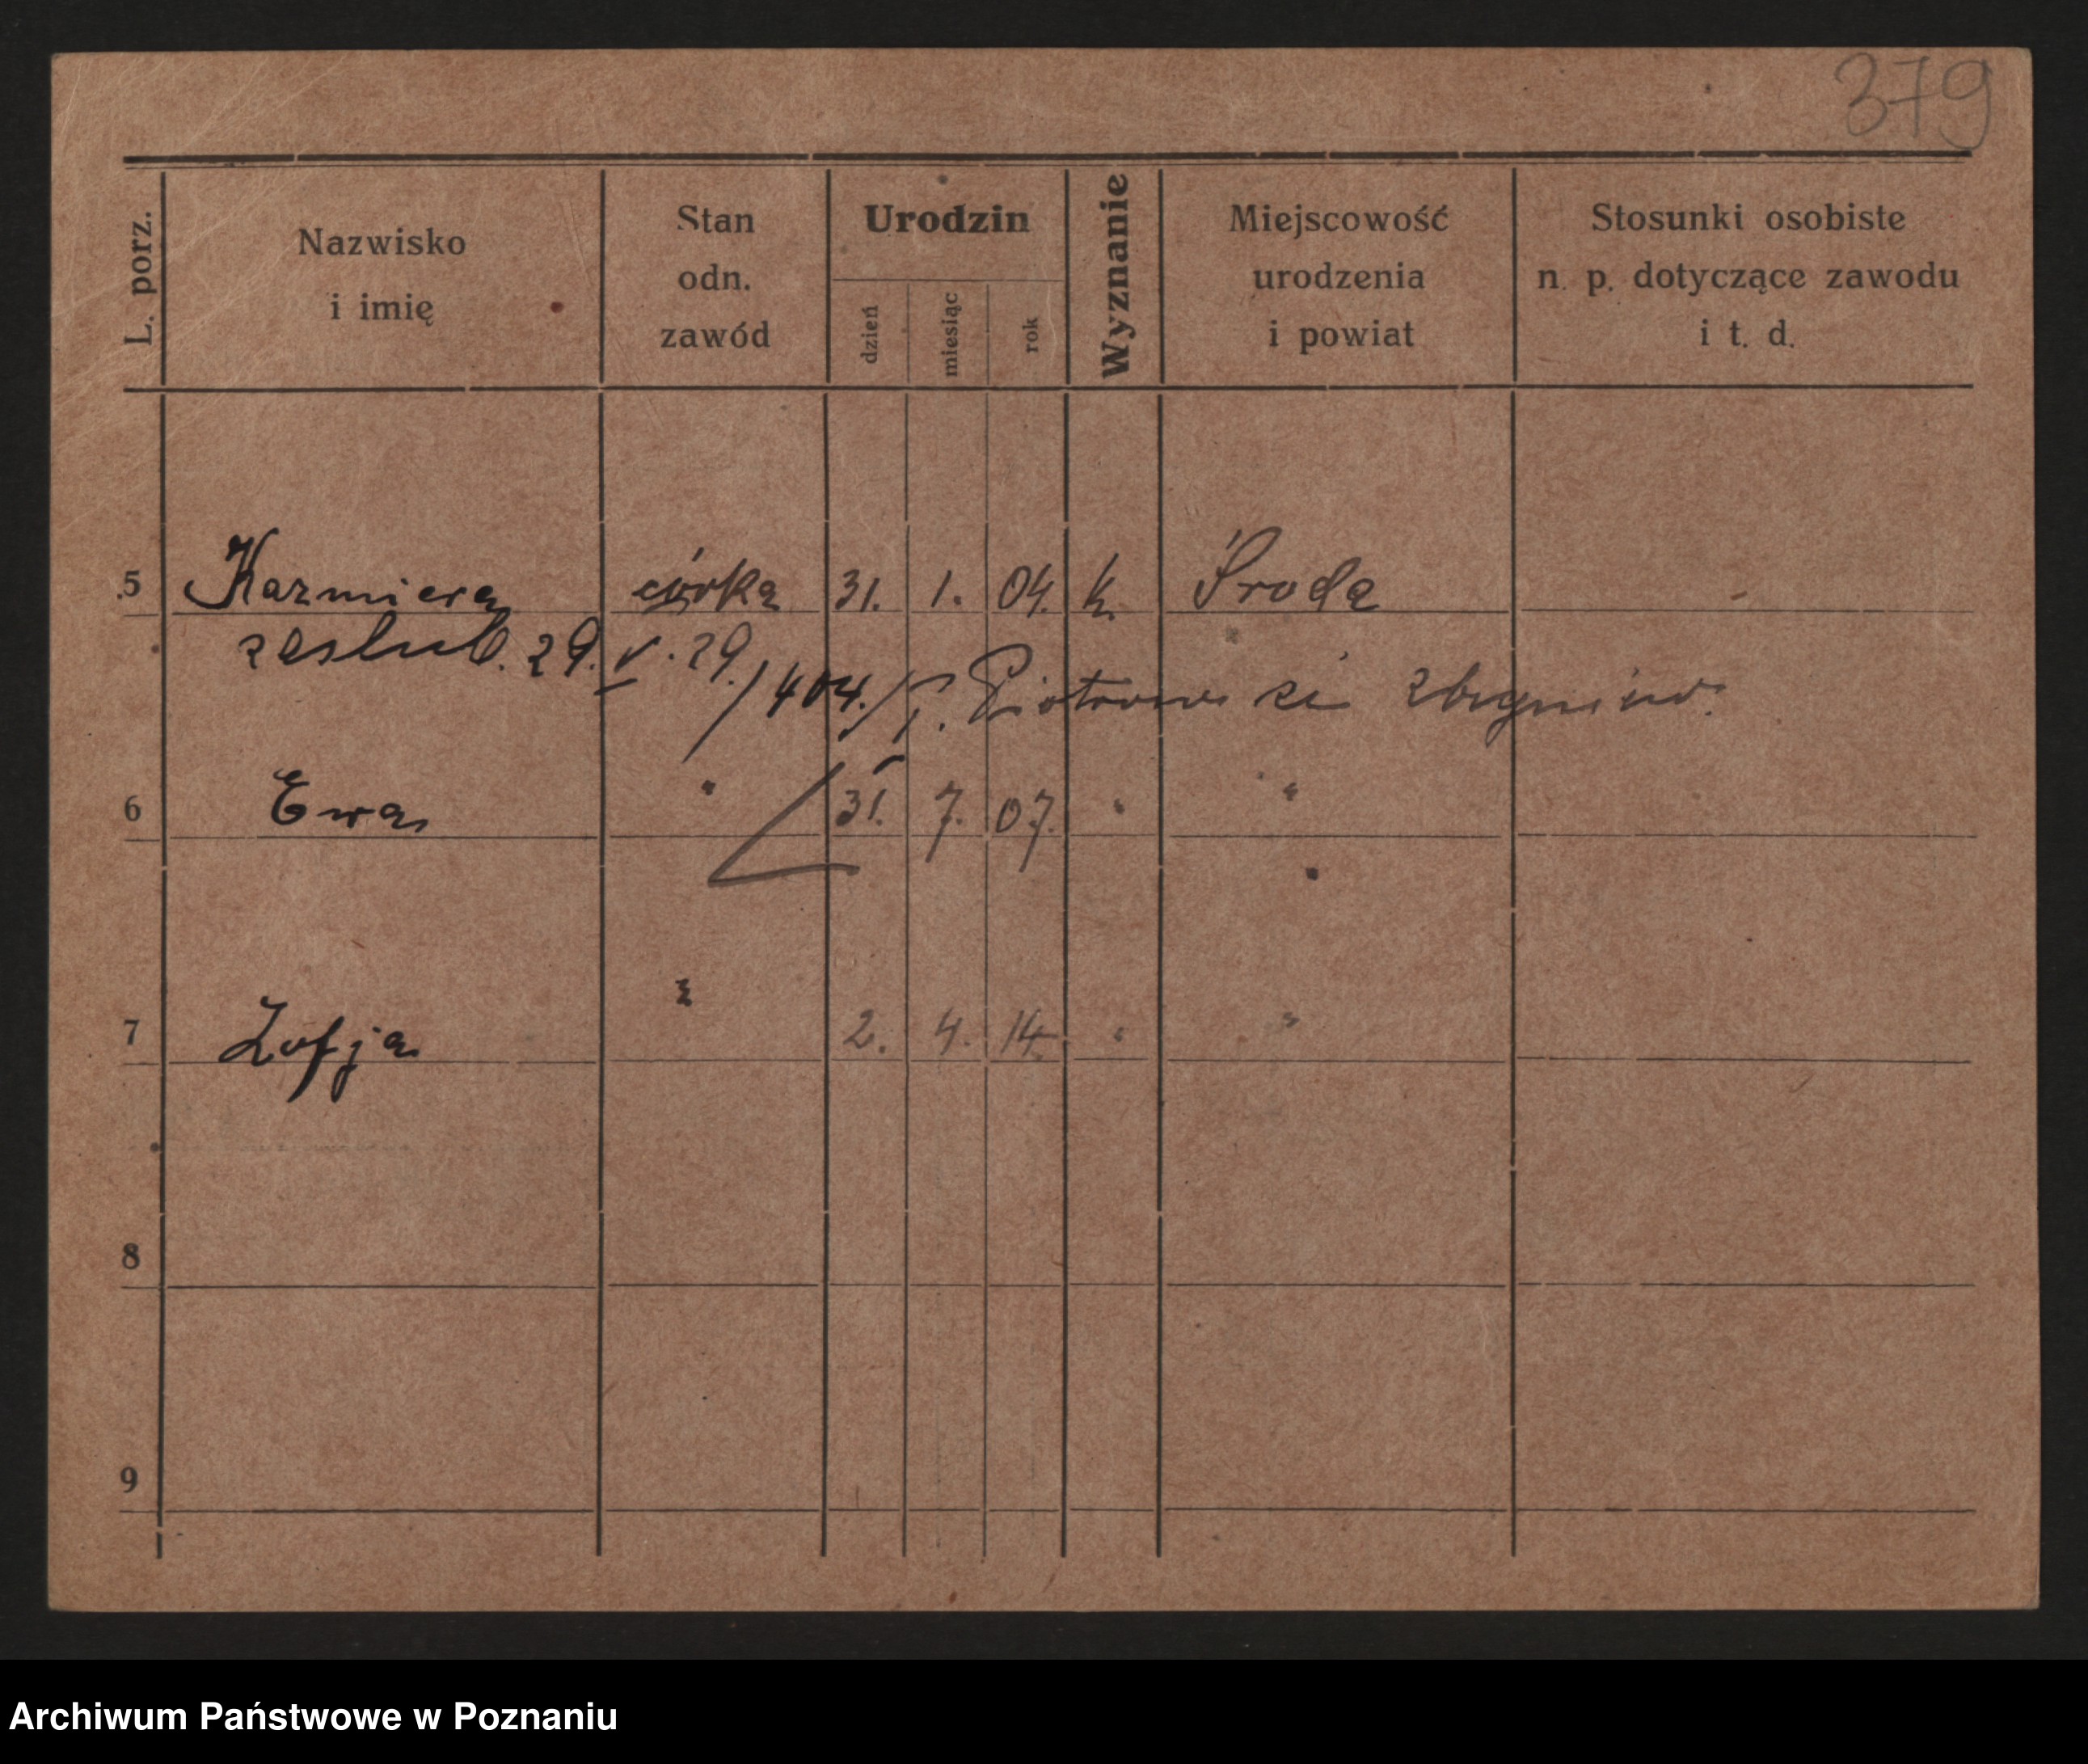 379
L. porz. Nazwisko i imię Stan odn. zawód Urodzin dzień miesiąc rok Wyznanie Miejscowość urodzenia i powiat Stosunki osobiste n. p. dotyczące zawodu i t. d.
5 Kazmiera córka 31. 1. 04. k. Środa
zaslub. 29. V. 29. /404./ P. Piotrowski Zbigniew.
6 Ewa " 31. 7. 07. " "
7 Zofja " 2. 4. 14. " "
8
9
Archiwum Państwowe w Poznaniu